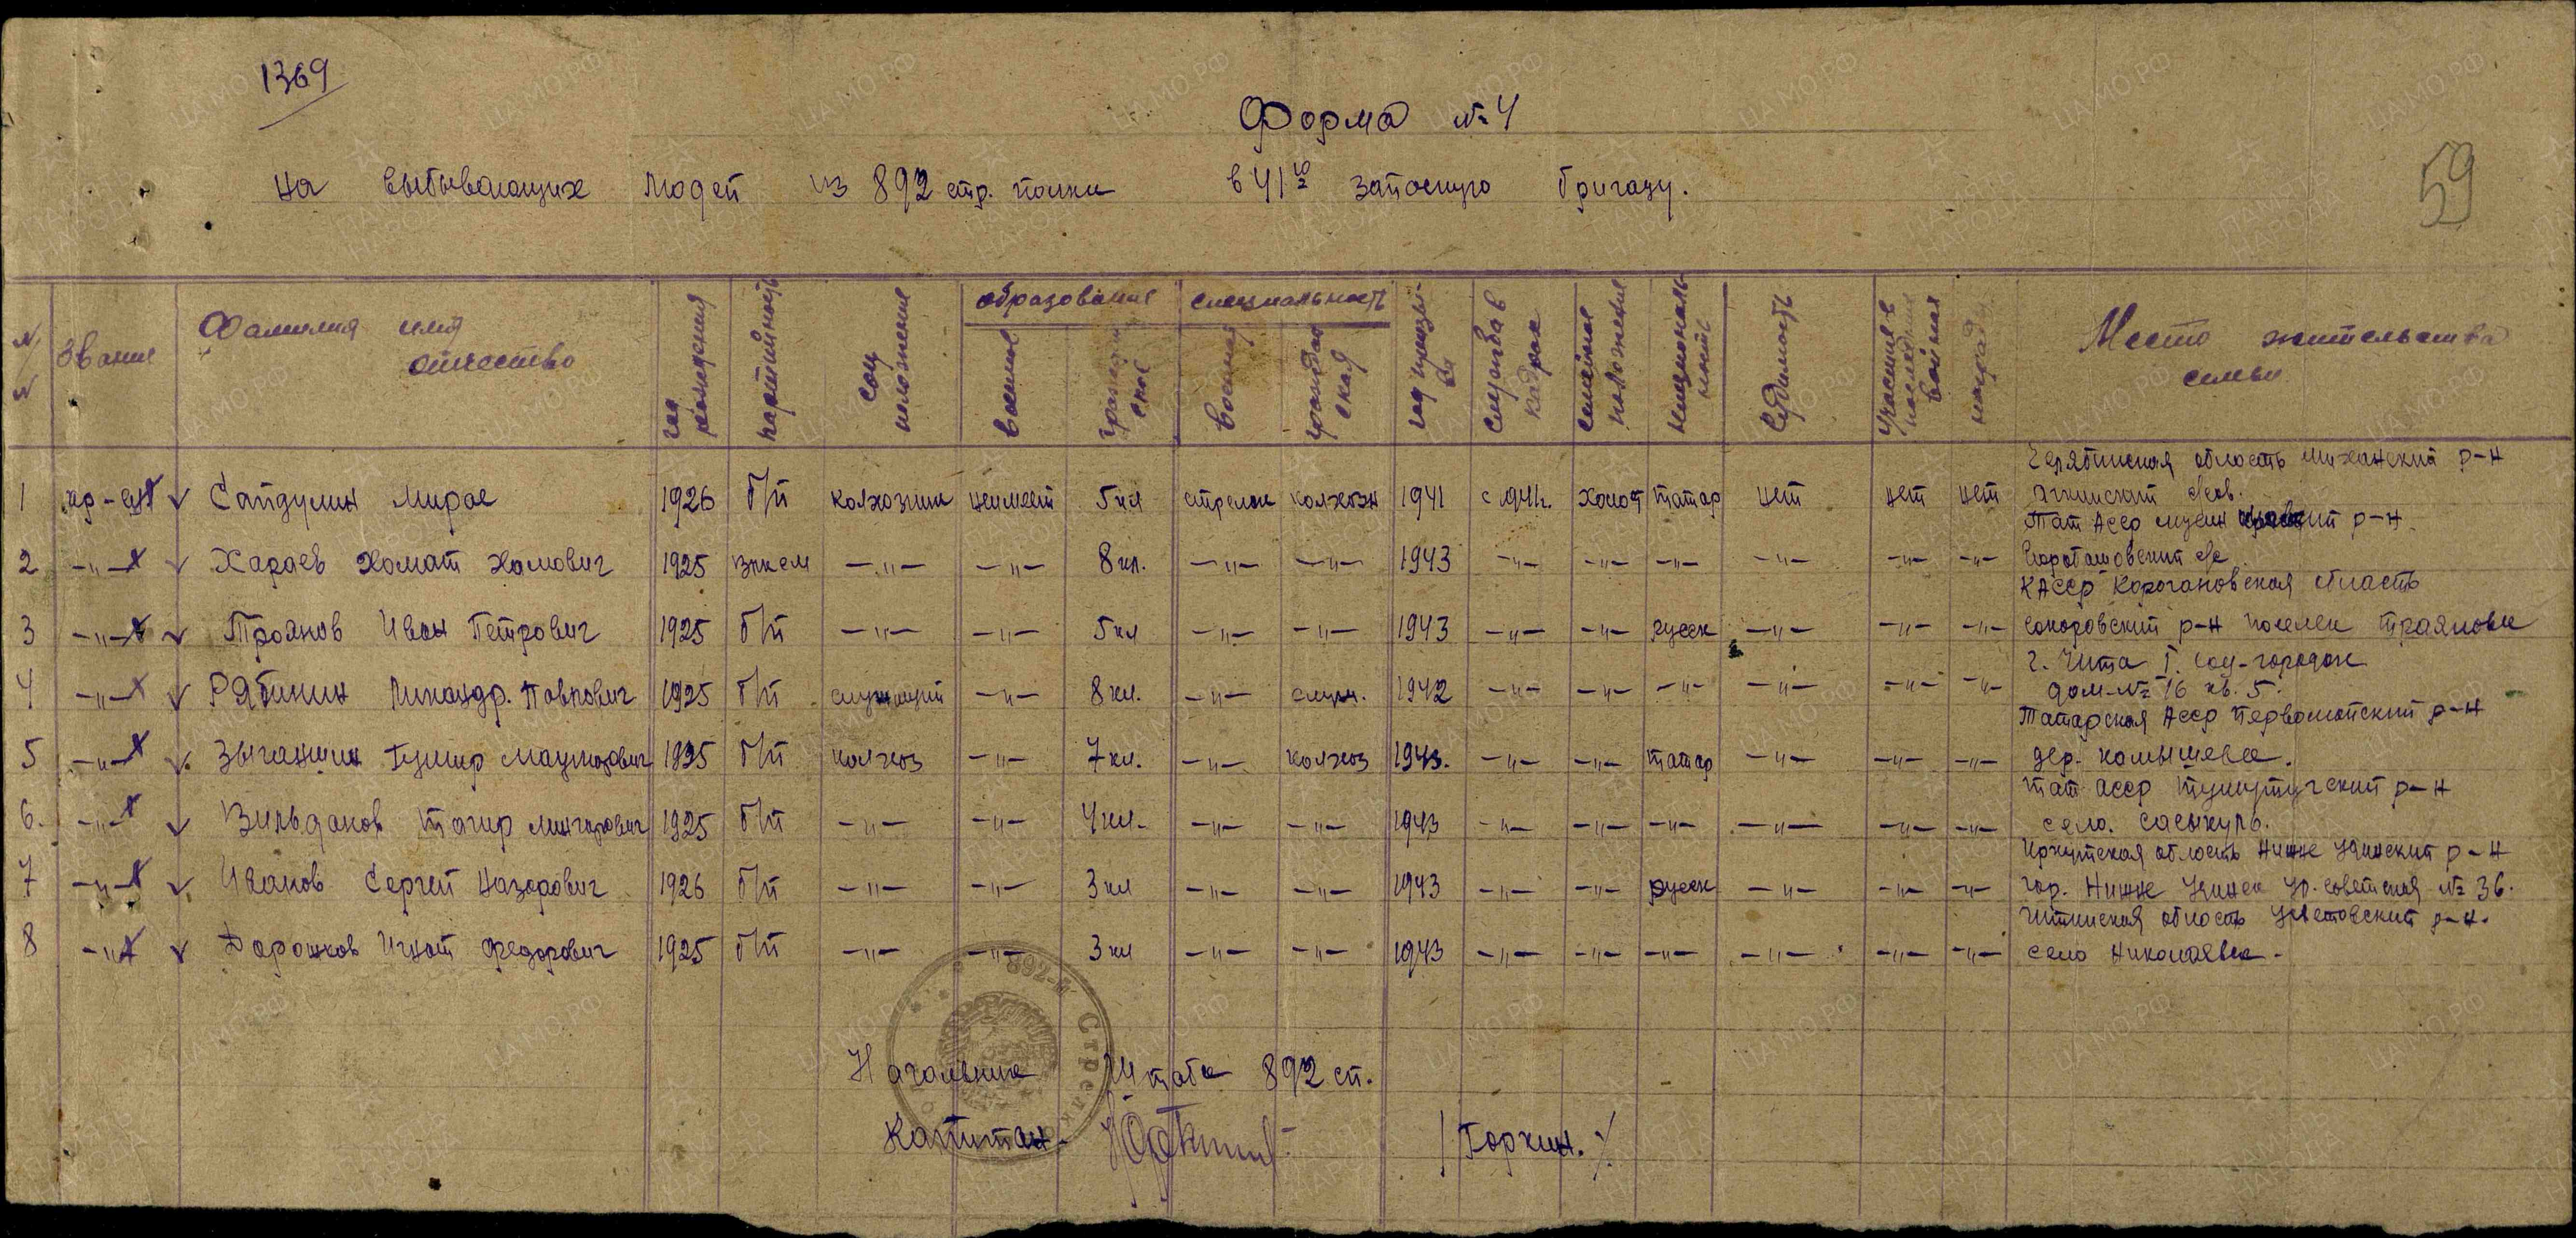 1369
Форма № 4
59
на выбывающих людей из 892 стр. полка в 41ю запасную бригаду.
№ № Звание Фамилия имя отчество год рождения партийность соц положение образование военное гражданское специальность военная гражданская год призыва служба в кадрах семейное положение национальность судимость участие в последних войнах награды Место жительства семьи
Челябинская область р-н
1 кр-ец Сайдулин Мирас 1926 б/п колхозник неимеет 5 кл стрелок колхозн 1941 с 1941г. холост татар нет нет нет с/сов.
Тат АССР р-н
2 -"- Хараев Хамат Хамович 1925 влксм -"- -"- 8 кл. -"- -"- 1943 -"- -"- -"- -"- -"- -"- с/с
КАССР Карогановская область
3 -"- Троянов Иван Петрович 1925 б/п -"- -"- 5 кл -"- -"- 1943 -"- -"- русск -"- -"- -"- р-н поселек Траяновка
г. Чита I. соц-городок
4 -"- Рябинин Никандр. Павлович 1925 б/п служащий -"- 8 кл. -"- служ. 1942 -"- -"- -"- -"- -"- -"- дом-№ 16 кв. 5.
Татарская АССР Первомайский р-н
5 -"- Зыганшин 1925 б/п колхоз -"- 7 кл. -"- колхоз 1943. -"- -"- татар -"- -"- -"- дер. камышевка.
Тат АССР р-н
6. -"- Вильданов Тагир 1925 б/п -"- -"- 4 кл. -"- -"- 1943 -"- -"- -"- -"- -"- -"- село. Сасыкуль.
Иркутская область Нижне Удинский р-н
7 -"- Иванов Сергей Назарович 1926 б/п -"- -"- 3 кл -"- -"- 1943 -"- -"- русск -"- -"- -"- гор. Нижне Удинск ул. советская № 36.
Читинская область Улетовский р-н.
8 -"- Дорошков Игнат Федорович 1925 б/п -"- -"- 3 кл -"- -"- 1943 -"- -"- -"- -"- -"- -"- село Николаевка.
892-й Стрелк
Начальник Штаба 892 сп.
Капитан- /Горкин./